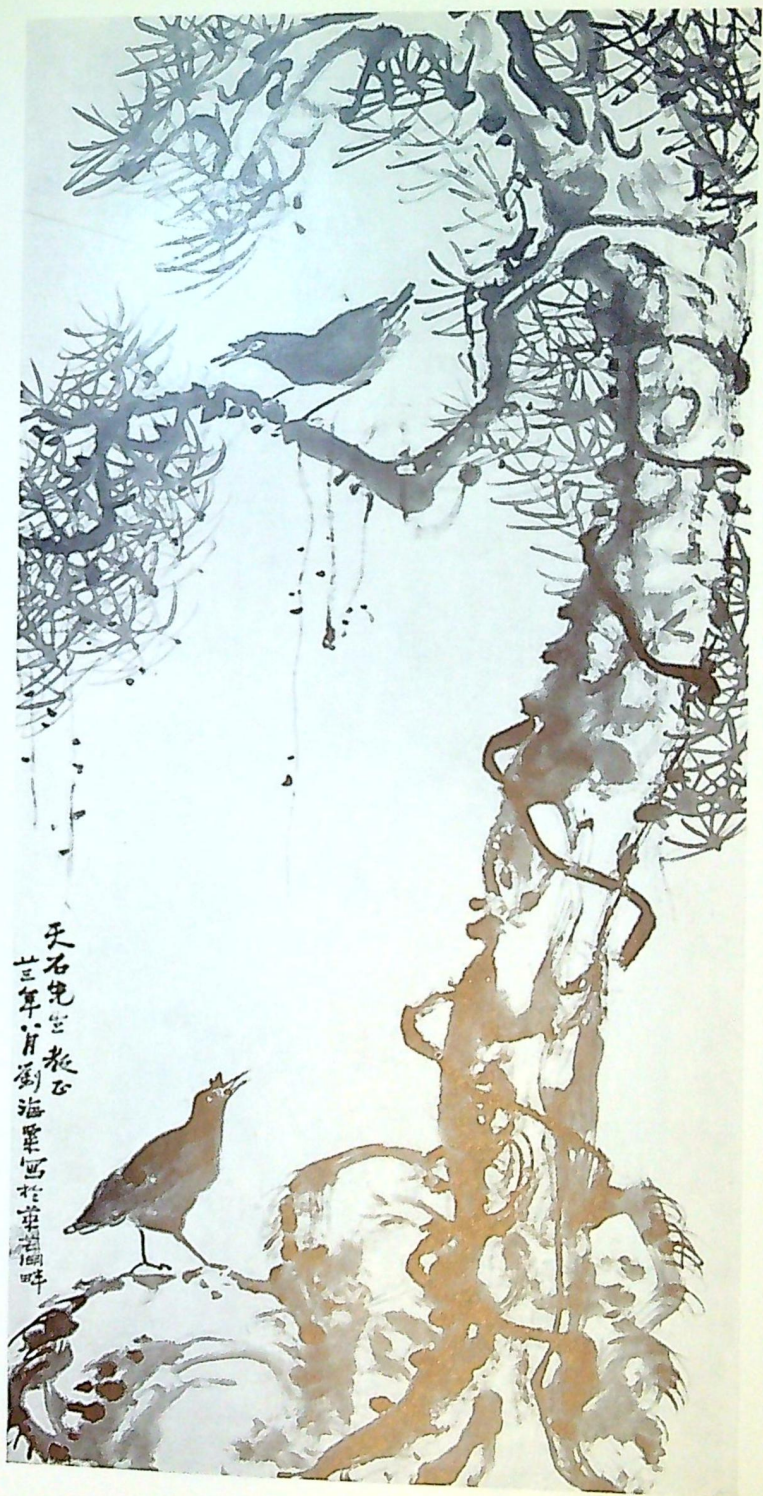 天石先生教正
廿三年八月劉海粟寫於萊茵河畔